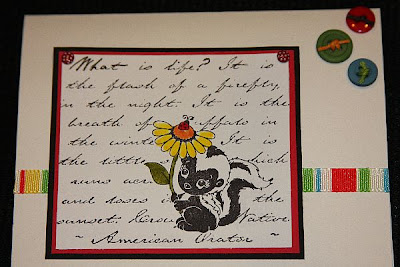 What is life? It is
the flash of a firefly
in the night. It is the
breath of buffalo in
the winte It is
the little hich
runs acr
and loses i the
sunset. Crow Native
~ American Orator ~